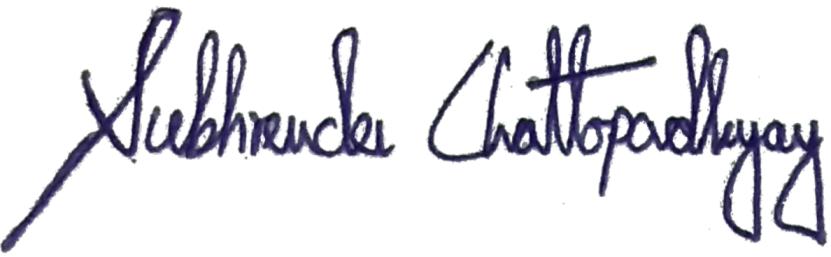 Subhrendu Chattopadhyay